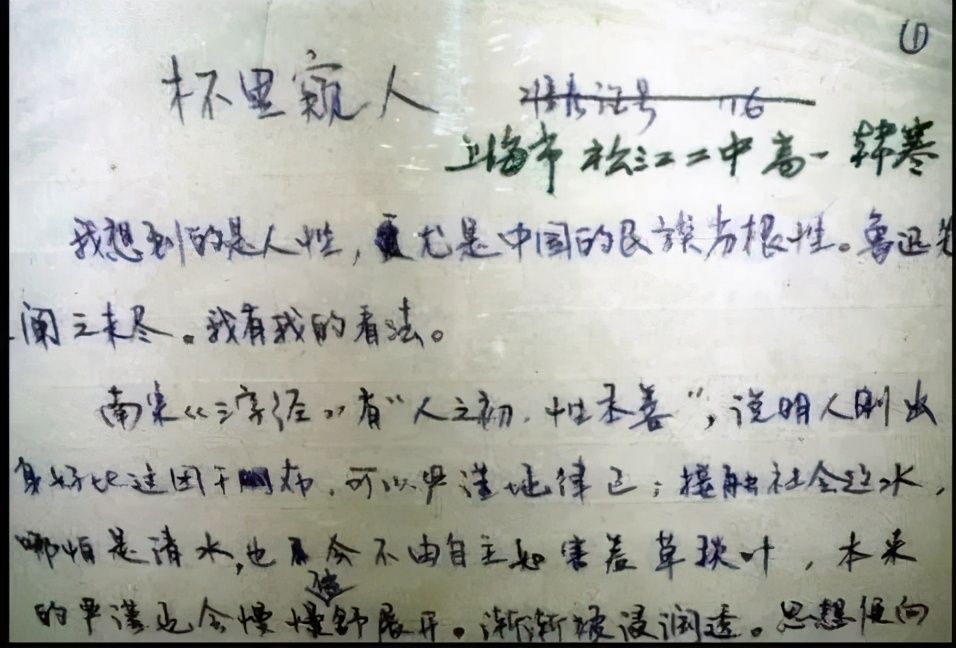 ①
杯里窥人
准考证号 116
上海市松江二中高一 韩寒
我想到的是人性，尤是中国的民族劣根性。鲁迅先
阐之未尽。我有我的看法。
南宋《三字经》有“人之初，性本善”，说明人刚出
身好比这团干布，可以严谨地律己；接触社会这水，
哪怕是清水，也会不由自主如害羞草叶，本来
的严谨也会慢慢地舒展开。渐渐被浸润透。思想便向